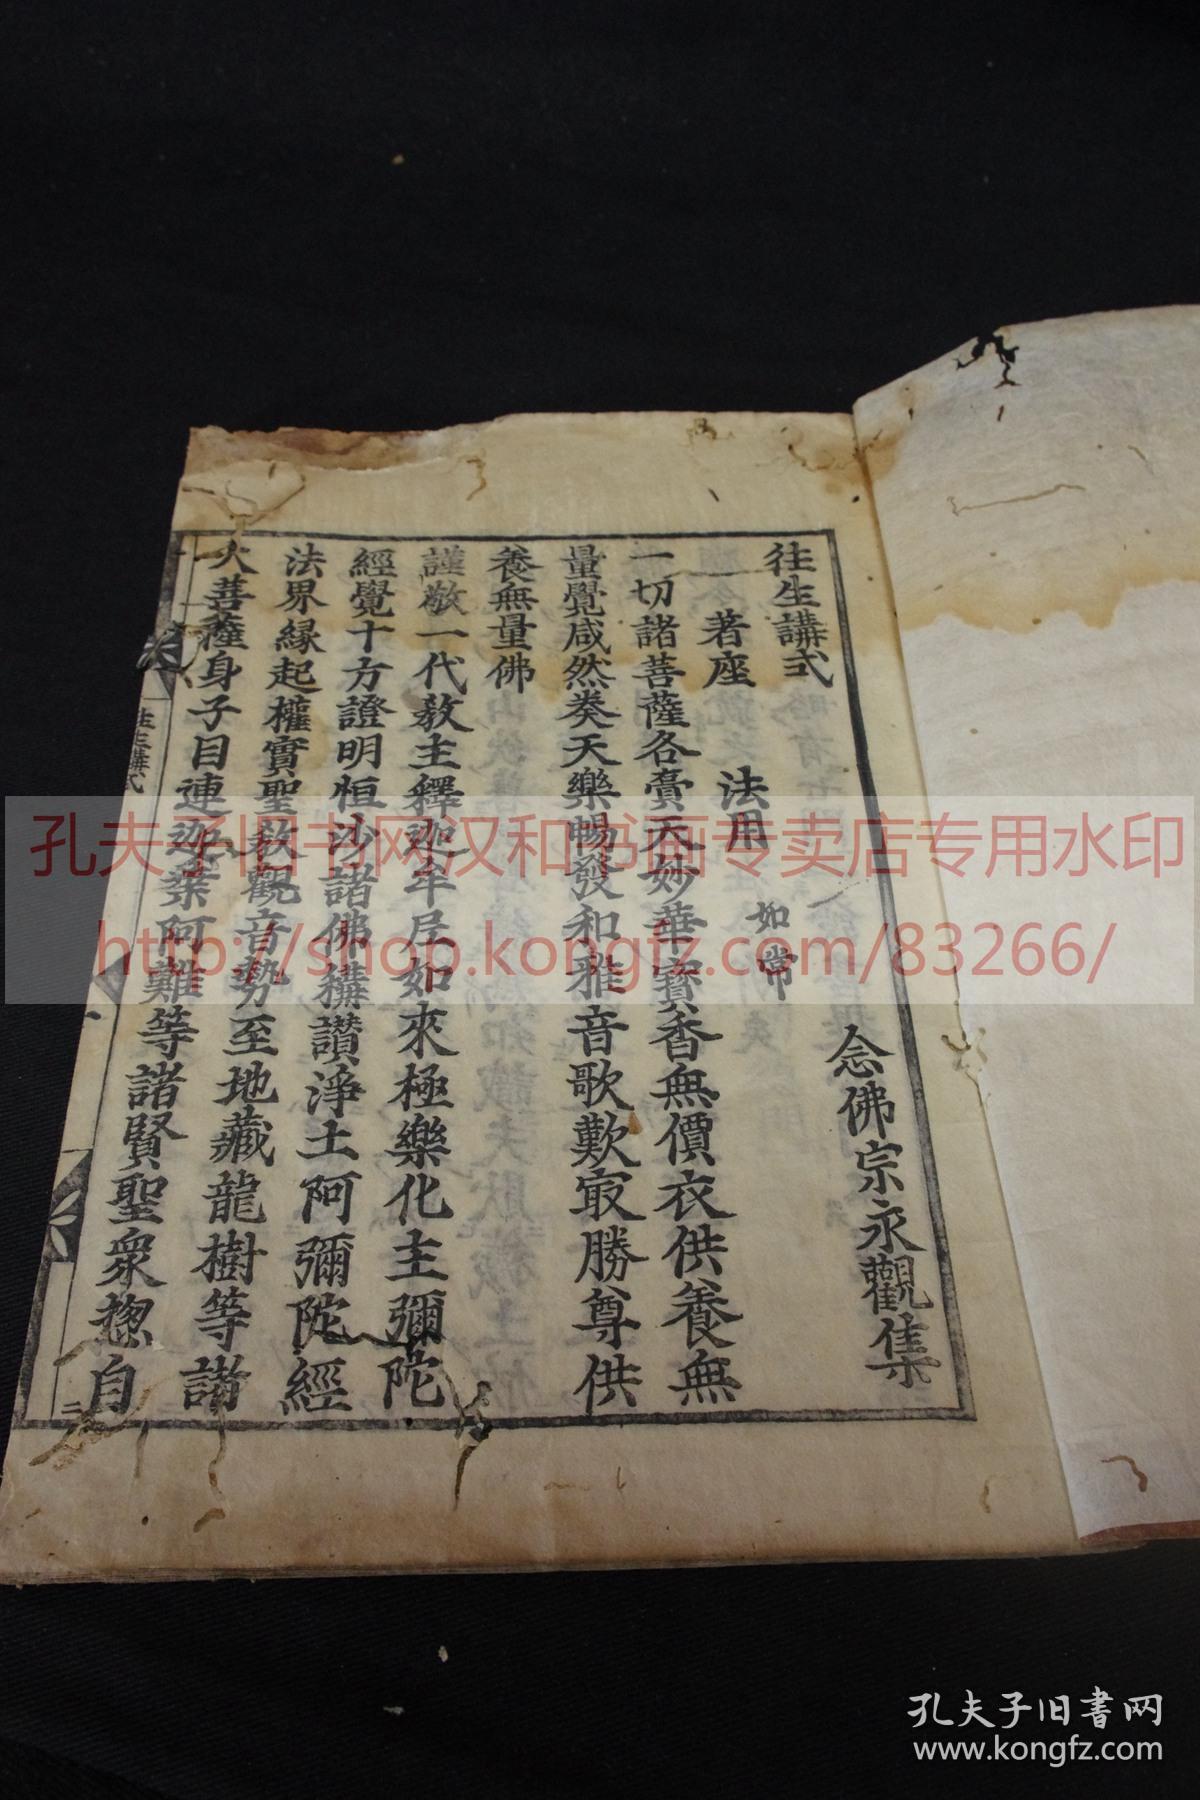 往生講式
念佛宗永觀集
著座　法用　如常
一切諸菩薩各賷天妙華寳香無價衣供養無
量覺咸然奏天樂暢發和雅音歌歎㝡勝尊供
養無量佛
謹敬一代教主釋迦牟尼如來極樂化主彌陀
經覺十方證明恒沙諸佛稱讚淨土阿彌陀經
法界縁起權實聖教觀音勢至地藏龍樹等諸
大菩薩身子目連迦葉阿難等諸賢聖衆惣自
往生講式
二
孔夫子旧书网汉和书画专卖店专用水印
http://shop.kongfz.com/83266/
孔夫子旧书网
www.kongfz.com